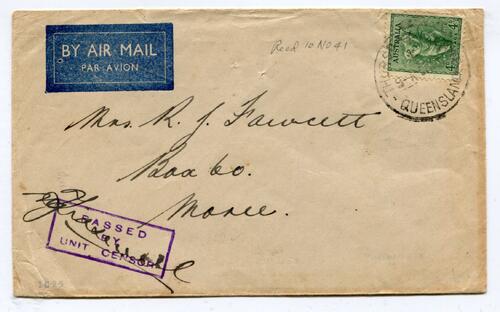 BY AIR MAIL
PAR AVION
Recd 10 NO 41
AUSTRALIA
QUEENSLAND
Mrs. R. J. Fawcett
Box 60.
Moree.
PASSED
BY
UNIT CENSOR